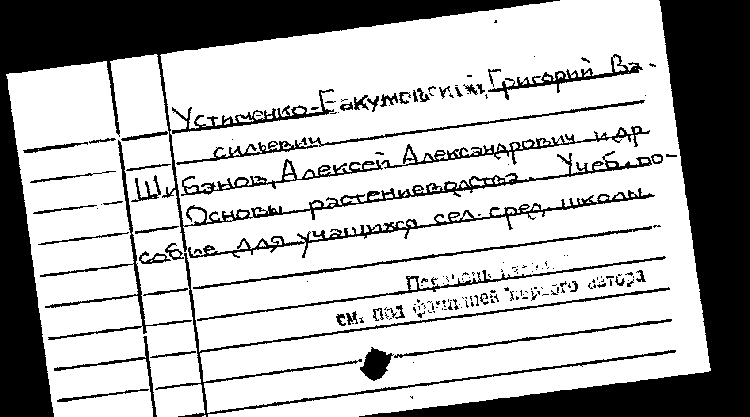 Устименко-Бакумовский, Григорий Ва-
сильевич
Шибанов, Алексей Александрович и др
Основы растениеводства. Учеб. по-
собие для учащихся сел. сред. школы
Перечень
см. под фамилией первого автора